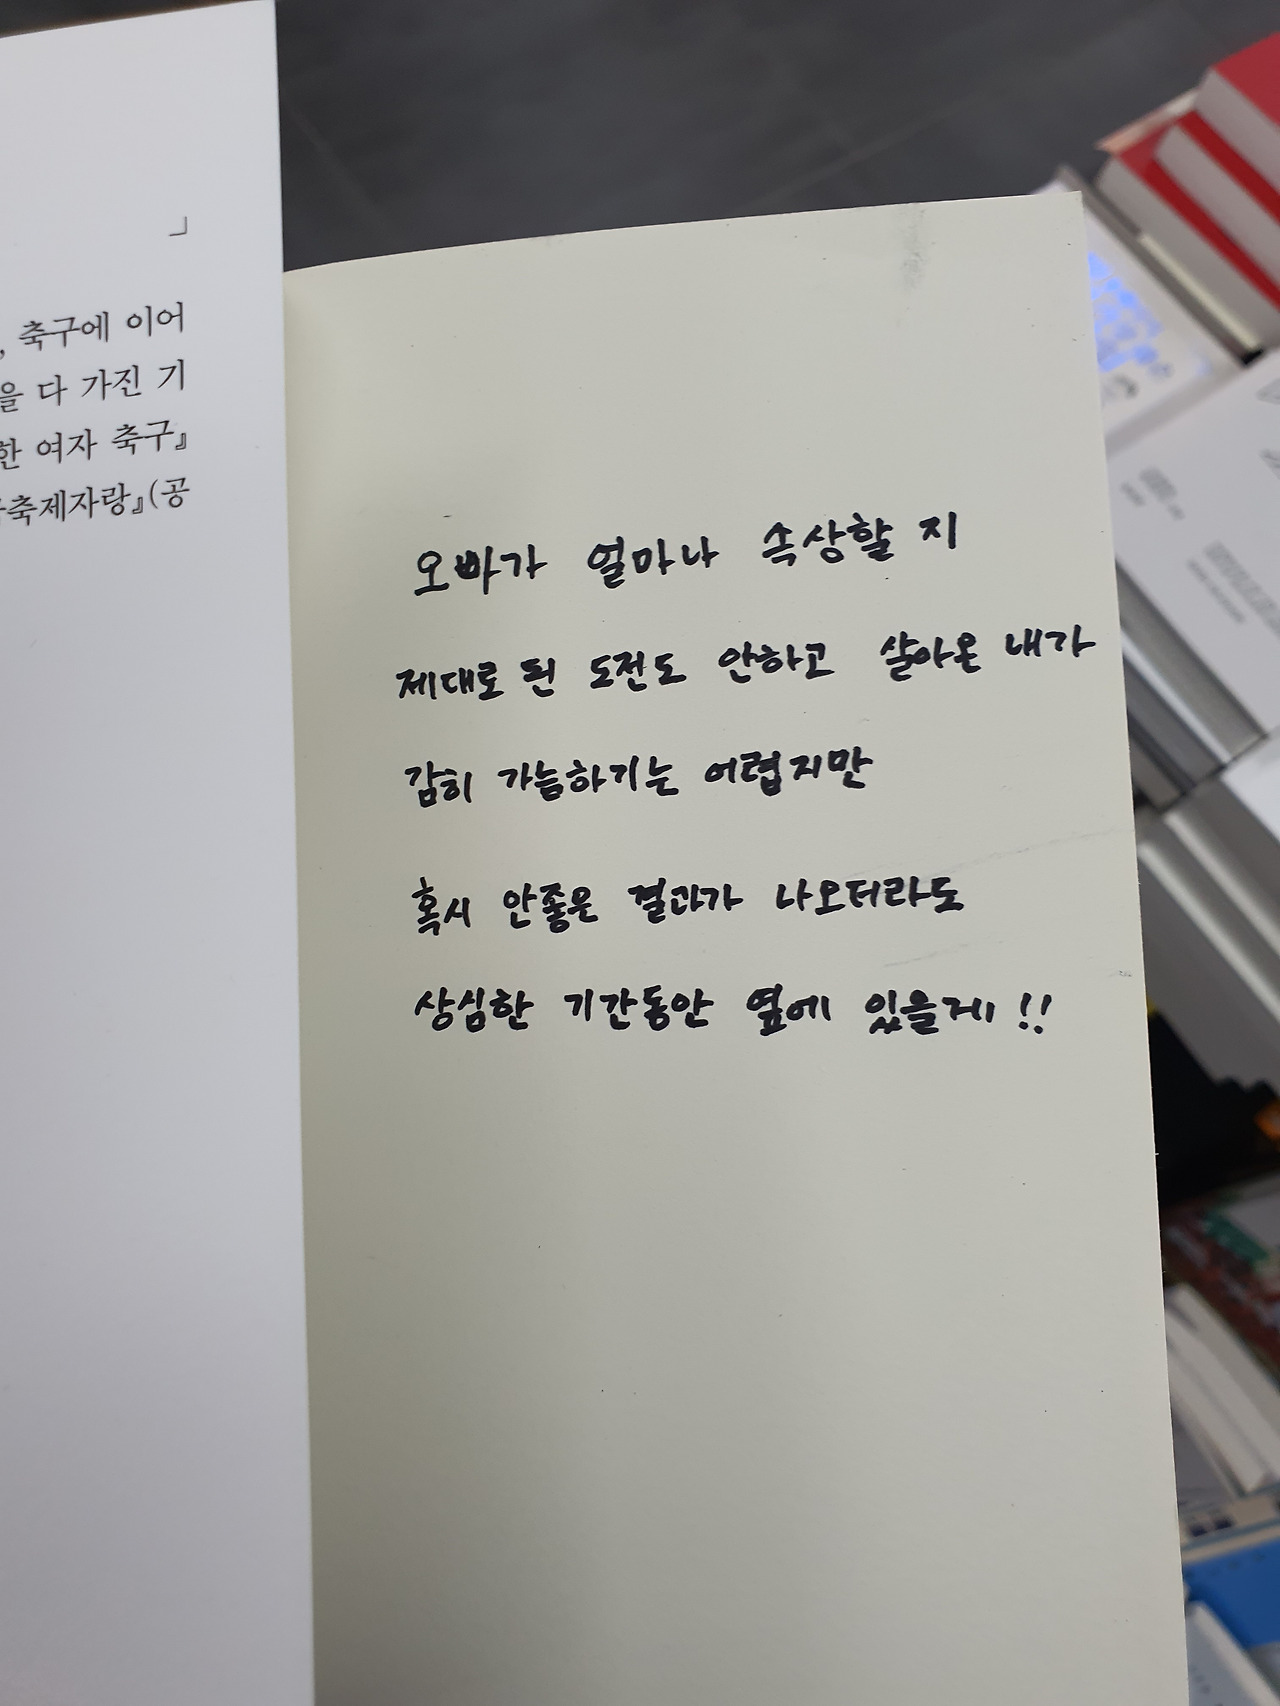 」
, 축구에 이어
을 다 가진 기
한 여자 축구』
축제자랑』(공
오빠가 얼마나 속상할 지
제대로 된 도전도 안하고 살아온 내가
감히 가늠하기는 어렵지만
혹시 안좋은 결과가 나오더라도
상심한 기간동안 옆에 있을게!!